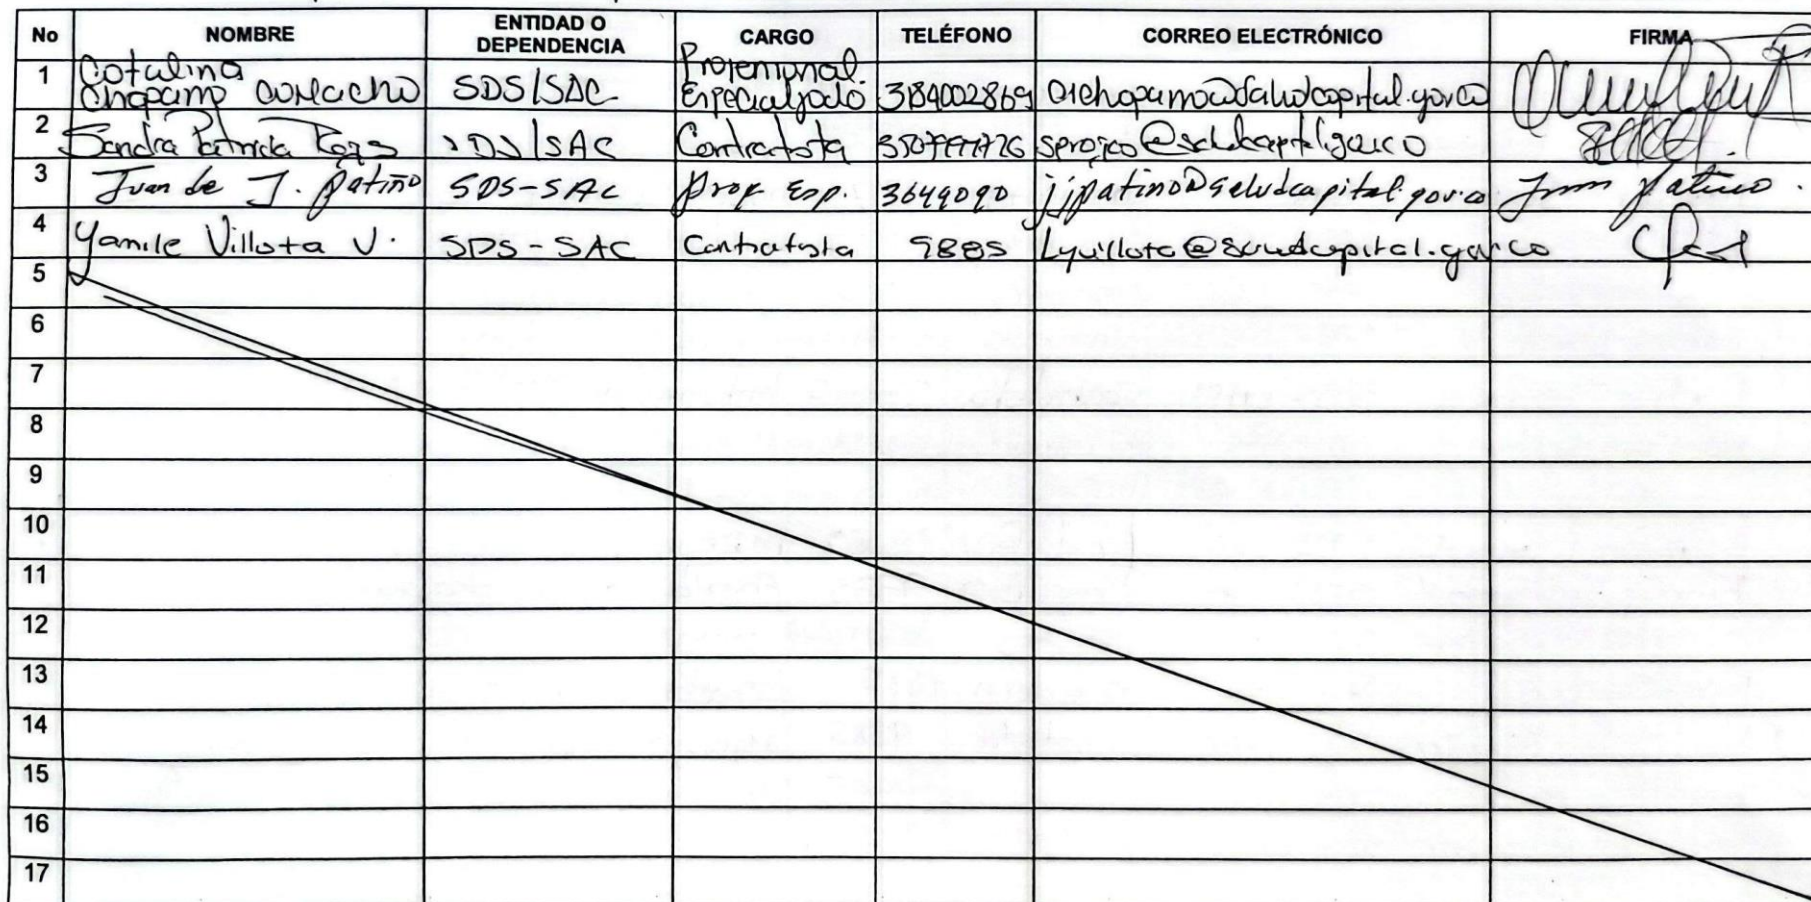 No NOMBRE ENTIDAD O DEPENDENCIA CARGO TELÉFONO CORREO ELECTRÓNICO FIRMA
1 Catalina Chaparro Camacho SDS/SAC Profesional Especializado 3184002869
2 Sandra Patricia Rojas SDS/SAC Contratista
3 Juan de J. Patiño SDS-SAC Prof Esp. 3649090 jjpatino@saludcapital.gov.co Juan Patiño.
4 Yamile Villota V. SDS-SAC Contratista 9885 Lyvillota@saludcapital.gov.co
5
6
7
8
9
10
11
12
13
14
15
16
17